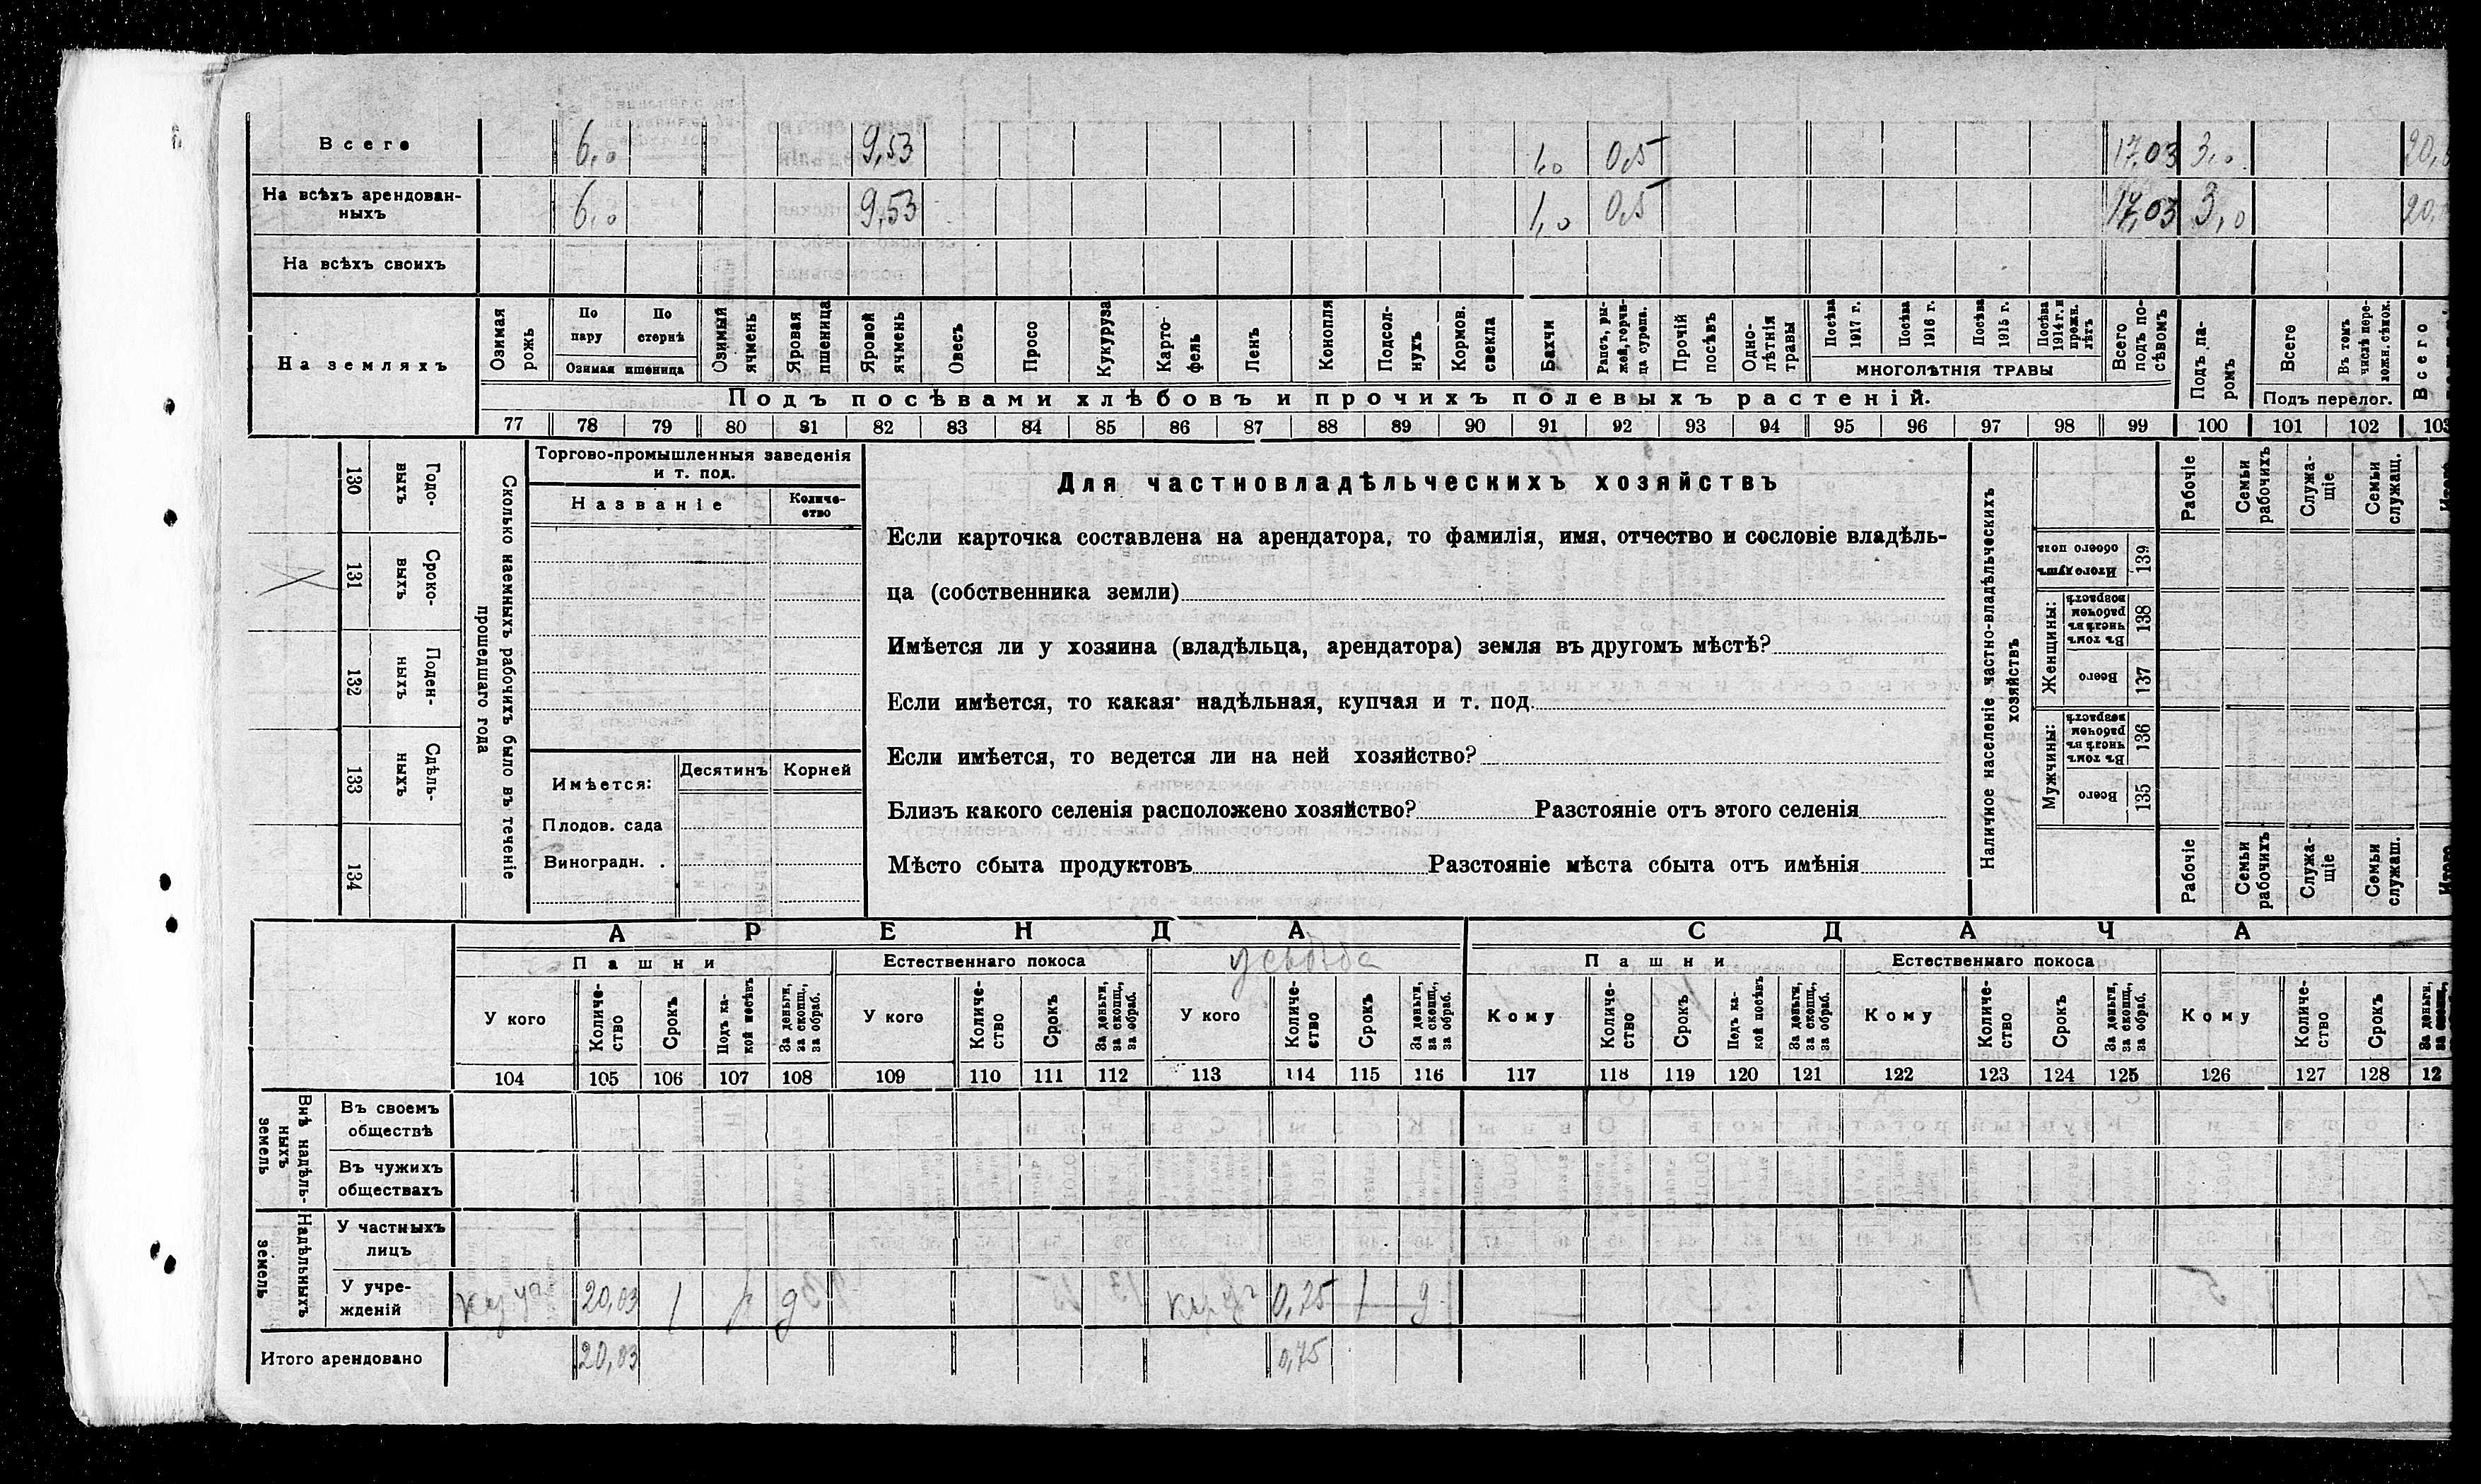 Всего 6,0 9,53 1,0 0,5 17,03 3,0
На всѣхъ арендован-
ныхъ 6,0 9,53 1,0 0,5 17,03 3,0
На всѣхъ своихъ
На земляхъ
Озимая рожь
По пару
По стернѣ
Озимая пшеница
Озимый ячмень
Яровая пшеница
Яровой ячмень
Овесъ
Просо
Кукуруза
Карто-
фель
Ленъ
Конопля
Подсол-
нухъ
Кормов. свекла
Бахчи
Рапсъ, ры-
жей, горчи-
ца сурепа.
Прочій посѣвъ
Одно-
лѣтнія травы
Посѣва 1917 г.
Посѣва 1916 г.
Посѣва 1915 г.
Посѣва 1914 г. и прежн. лѣтъ
МНОГОЛѢТНІЯ ТРАВЫ
Всего подъ по-
сѣвомъ
Подъ па-
ромъ
Всего
Въ томъ числѣ пере-
ложн. сѣнок.
Подъ перелог.
Всего
Подъ посѣвами хлѣбовъ и прочихъ полевыхъ растеній.
77 78 79 80 81 82 83 84 85 86 87 88 89 90 91 92 93 94 95 96 97 98 99 100 101 102 103
130 Годо-
выхъ
131 Сроко-
выхъ
132 Поден-
ныхъ
133 Сдѣль-
ныхъ
134
Сколько наемныхъ рабочихъ было въ теченіе
прошедшаго года
Торгово-промышленныя заведенія
и т. под.
Названіе
Количе-
ство
Имѣется: Десятинъ Корней
Плодов. сада
Виноградн. .
Для частновладѣльческихъ хозяйствъ
Если карточка составлена на арендатора, то фамилія, имя, отчество и сословіе владѣль-
ца (собственника земли)
Имѣется ли у хозяина (владѣльца, арендатора) земля въ другомъ мѣстѣ?
Если имѣется, то какая надѣльная, купчая и т. под.
Если имѣется, то ведется ли на ней хозяйство?
Близъ какого селенія расположено хозяйство? Разстояніе отъ этого селенія
Мѣсто сбыта продуктовъ Разстояніе мѣста сбыта отъ имѣнія
Наличное населеніе частно-владѣльческихъ
хозяйствъ
Рабочіе
Семьи рабочихъ
Служа-
щіе
Семьи служащ.
Итого
Итого душъ обоего пола 139
Женщины:
Въ томъ числѣ въ рабочемъ возрастѣ 138
Всего 137
Мужчины:
Въ томъ числѣ въ рабочемъ возрастѣ 136
Всего 135
Рабочіе
Семьи рабочихъ
Служа-
щіе
Семьи служащ.
Итого
АРЕНДА СДАЧА
Пашни Естественнаго покоса усадьба Пашни Естественнаго покоса
У кого
Количе-
ство
Срокъ
Подъ ка-
кой посѣвъ
За деньги, за скопщ., за обраб.
У кого
Количе-
ство
Срокъ
За деньги, за скопщ., за обраб.
У кого
Количе-
ство
Срокъ
За деньги, за скопщ., за обраб.
Кому
Количе-
ство
Срокъ
Подъ ка-
кой посѣвъ
За деньги, за скопщ., за обраб.
Кому
Количе-
ство
Срокъ
За деньги, за скопщ., за обраб.
Кому
Количе-
ство
Срокъ
За деньги,
104 105 106 107 108 109 110 111 112 113 114 115 116 117 118 119 120 121 122 123 124 125 126 127 128 12
Внѣ надѣль-
ныхъ
земель
Въ своемъ
обществѣ
Въ чужихъ
обществахъ
Надѣльныхъ
земель
У частныхъ
лицъ
У учре-
жденій 20,03 1 д 1 д
Итого арендовано 20,03